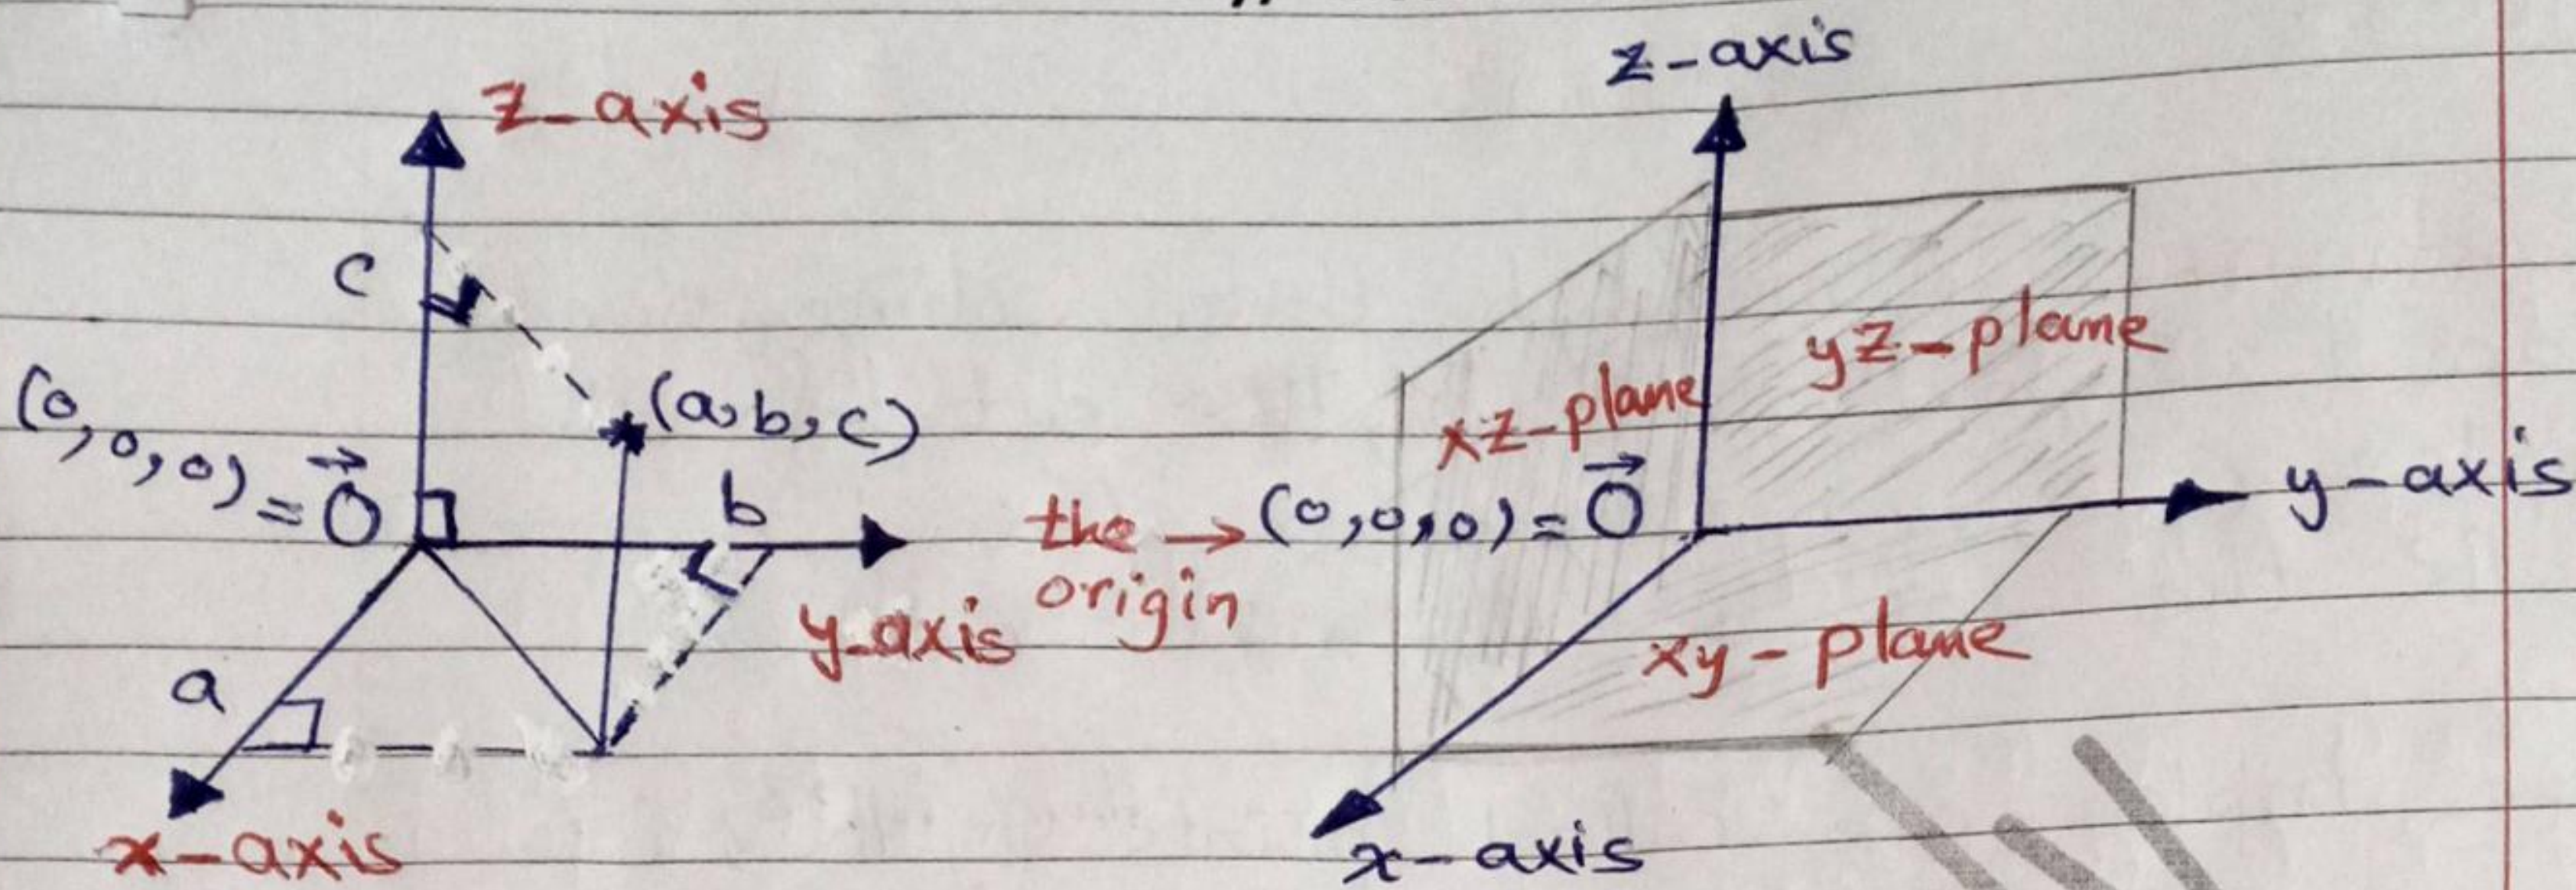 z-axis
c
(a,b,c)
(0,0,0) = \vec{0}
b
y-axis
a
x-axis
z-axis
yz-plane
xz-plane
the → (0,0,0) = \vec{0}
origin
y-axis
xy-plane
x-axis